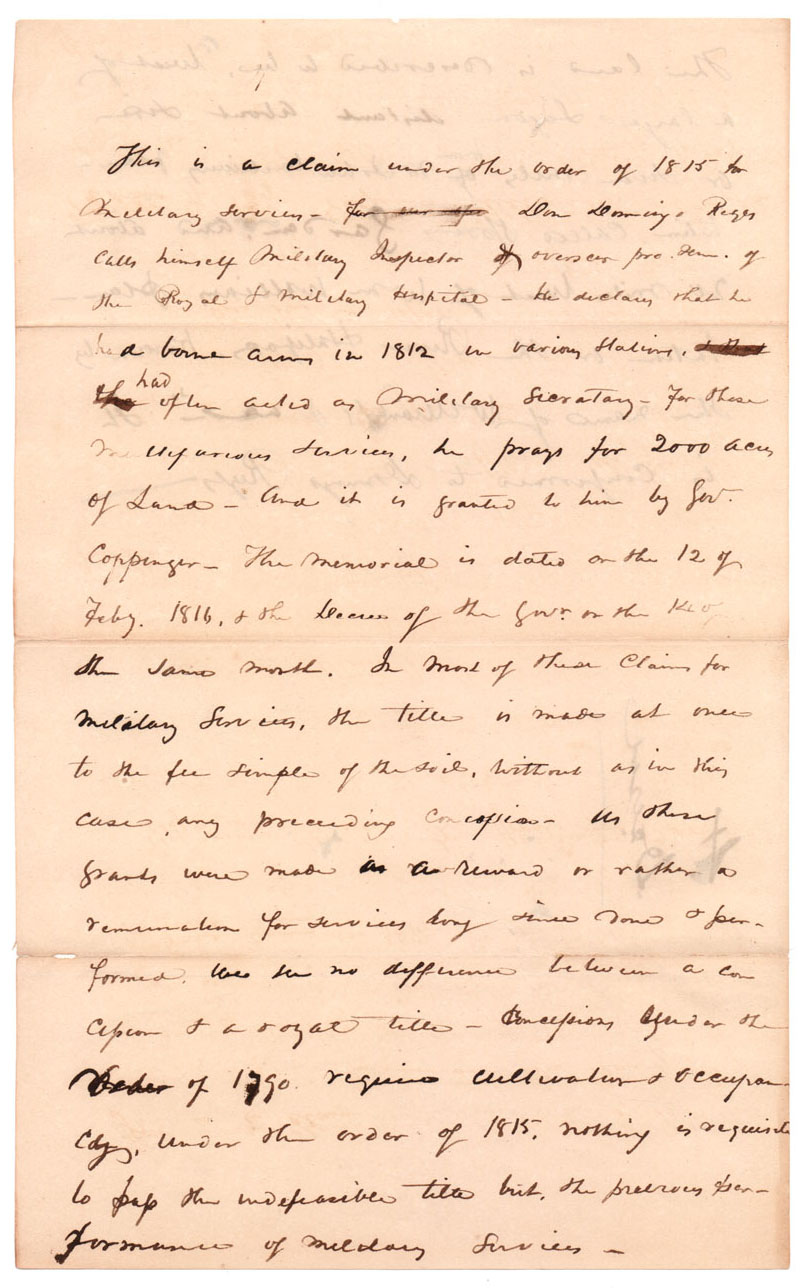 This is a claim under the order of 1815 for
Military Services – for Don Domingo Reyes
calls himself Military Inspector & overseer pro. tem. of
the Royal & Military Hospital – He declares that he
had borne arms in 1812 in various stations,
had often acted as Military Secratary – For these
multifarious services, he prays for 2000 acres
of Land – And it is granted to him by Gov.
Coppinger – The Memorial is dated on the 12 of
Feby. 1816, & the Decree of the Govr. on the of
the same month. In most of these Claims for
Military Services, the title is made at once
to the fee simple of the soil, without as in this
case, any preceeding Concession – As these
grants were made as a reward or rather a
remuneration for services long since done & per-
formed. We see no difference between a con
cession & a royal title – Concessions Under the
Order of 1790 require cultivation & occupan-
cy, Under the order of 1815, nothing is requisite
to pass the indefeasible title but, the previous per-
formance of military services –